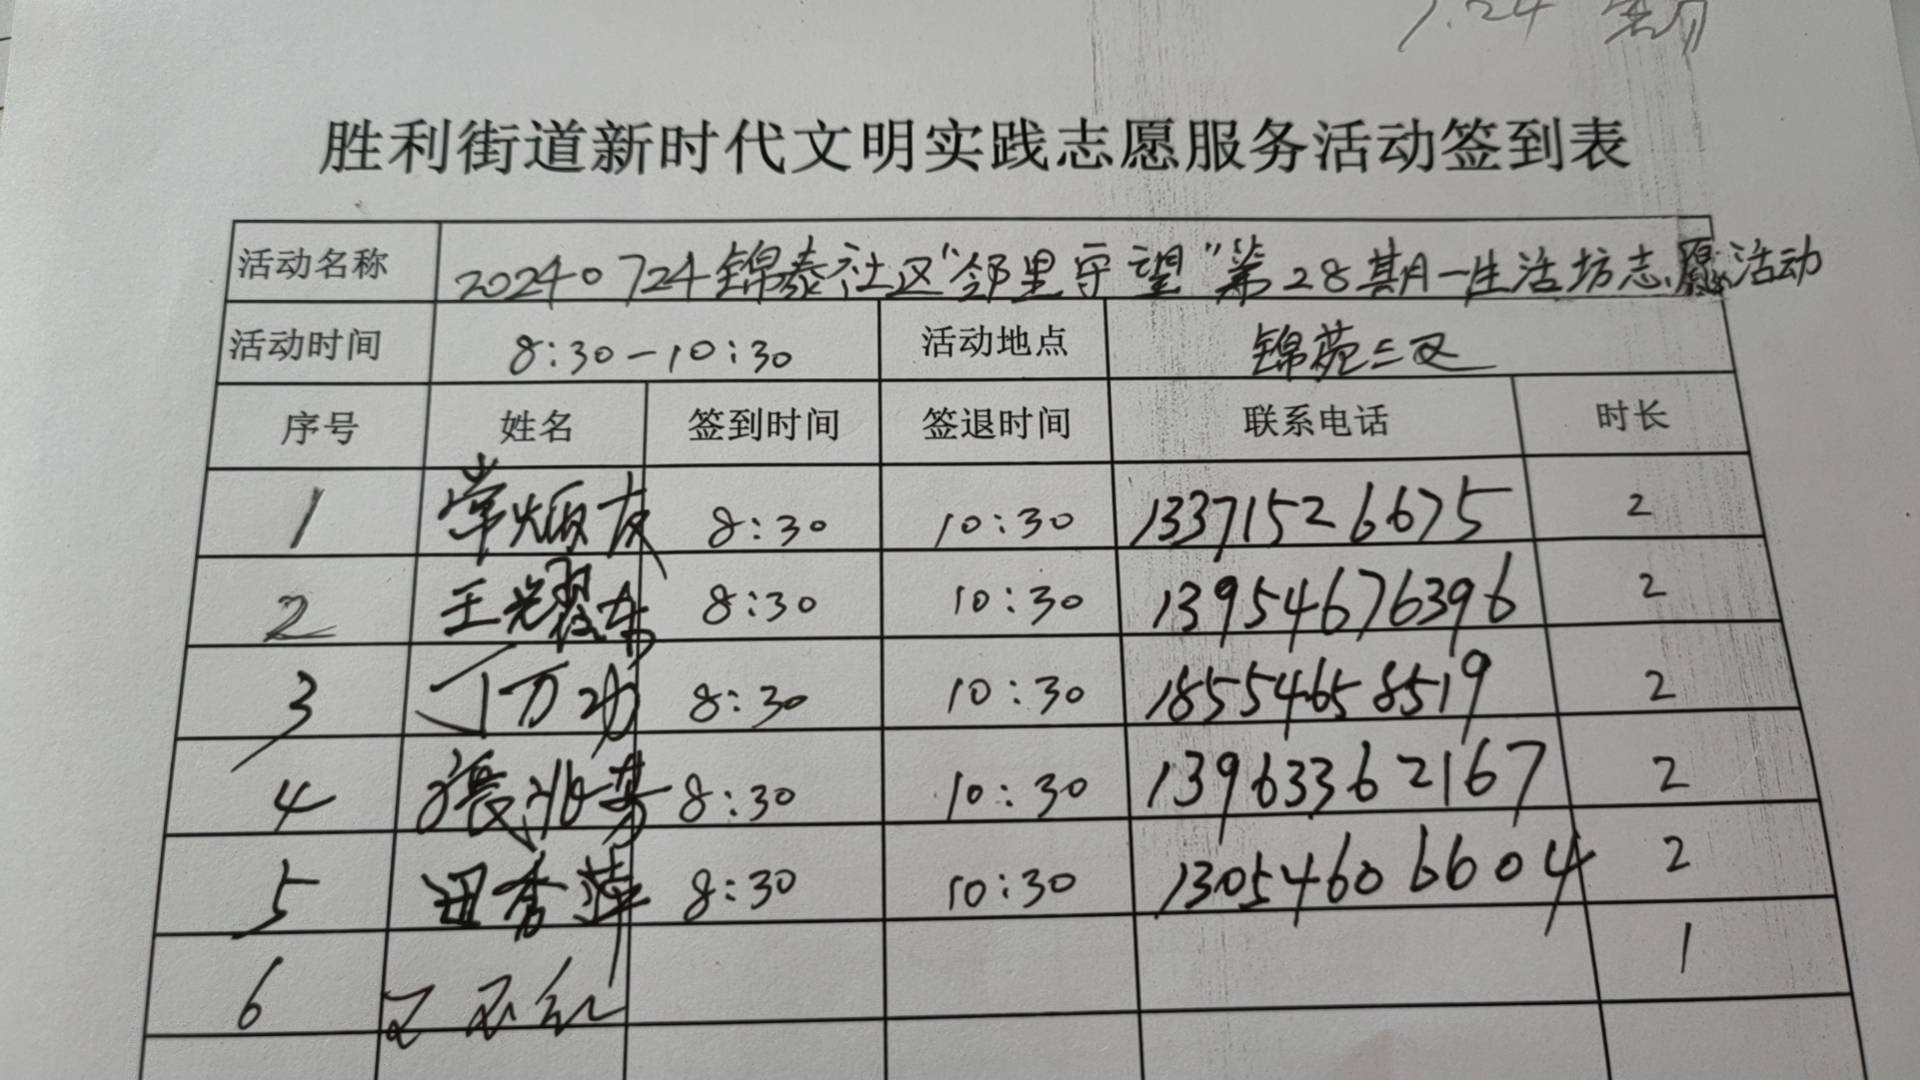 7.24
胜利街道新时代文明实践志愿服务活动签到表
活动名称 20240724锦泰社区“邻里守望”第28期A一生活坊志愿活动
活动时间 8:30-10:30 活动地点 锦苑三区
序号 姓名 签到时间 签退时间 联系电话 时长
1 常炳友 8:30 10:30 13371526675 2
2 王光翠 8:30 10:30 13954676396 2
3 丁万功 8:30 10:30 18554658519 2
4 8:30 10:30 13963362167 2
5 田秀萍 8:30 10:30 13054606604 2
6 1